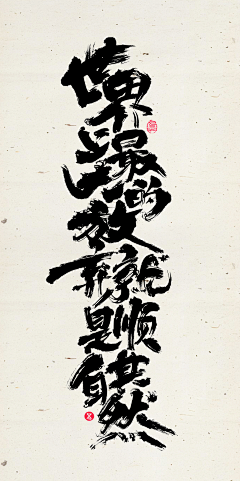 世界上最的放弃就是顺其自然